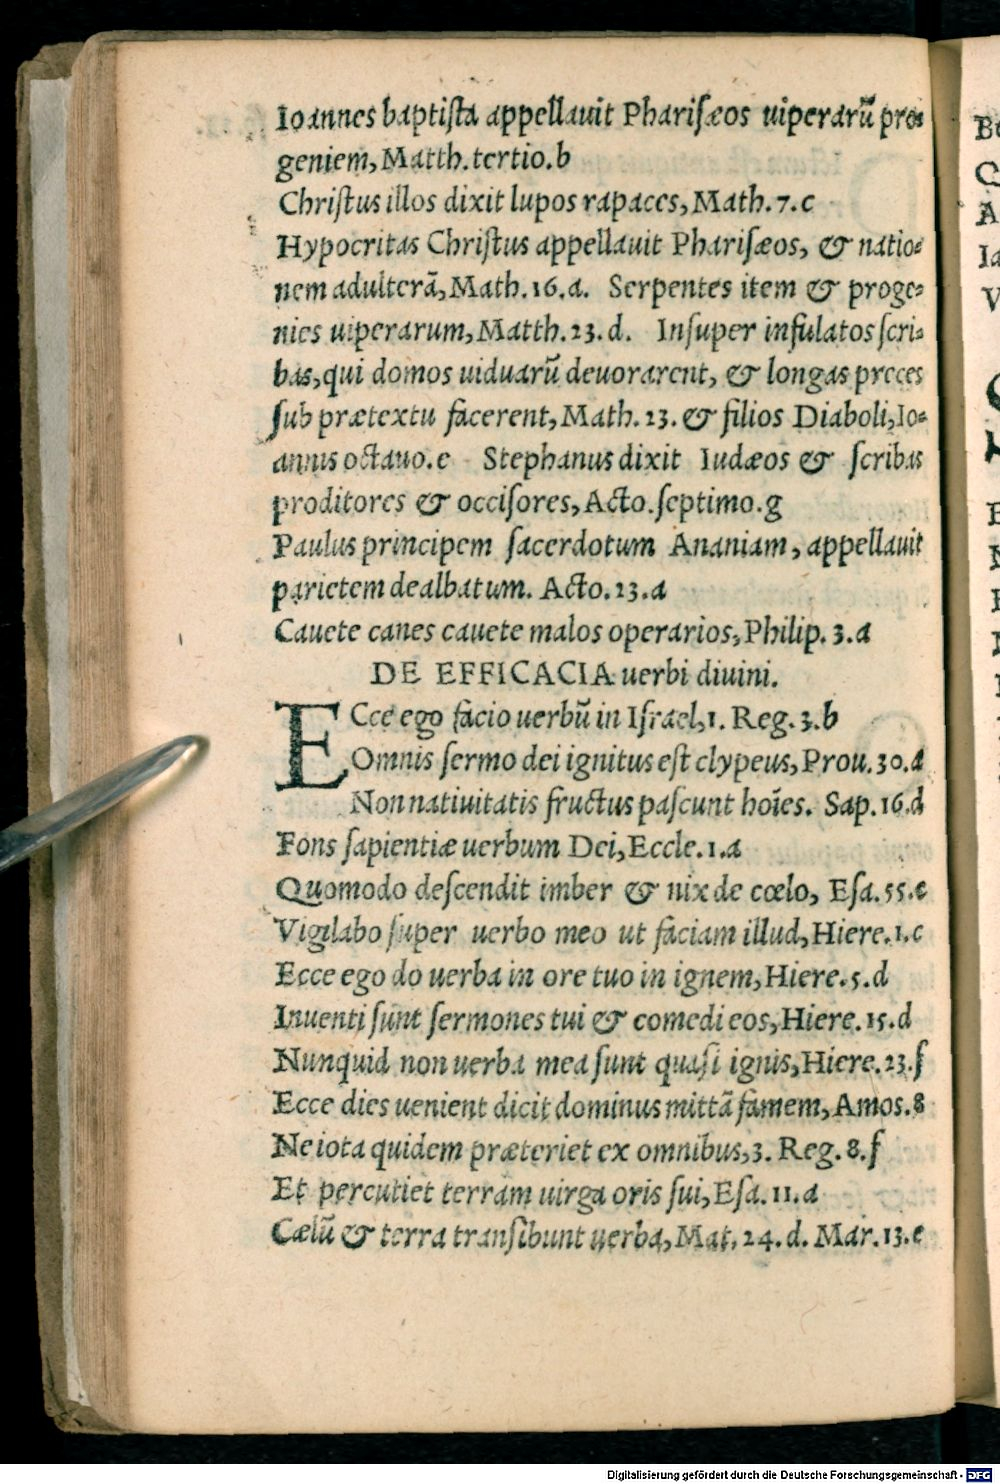 Ioannes baptista appellauit Phariſæos uiperarũ pro⸗
geniem, Matth.tertio.b
Chriſtus illos dixit lupos rapaces, Math.7.c
Hypocritas Chriſtus appellauit Phariſæos, & natio⸗
nem adulterã, Math.16.a. Serpentes item & proge⸗
nies uiperarum, Matth.23.d. Inſuper infulatos ſcri⸗
bas, qui domos uiduarũ deuorarent, & longas preces
ſub prætextu facerent, Math.23. & filios Diaboli, Io⸗
annis octauo.e Stephanus dixit Iudæos & ſcribas
proditores & occiſores, Acto.ſeptimo.g
Paulus principem ſacerdotum Ananiam, appellauit
parietem dealbatum. Acto.23.a
Cauete canes cauete malos operarios, Philip.3.a
DE EFFICACIA uerbi diuini.
ECce ego facio uerbũ in Iſrael, 1. Reg.3.b
Omnis ſermo dei ignitus eſt clypeus, Prou.30.a
Non natiuitatis fructus paſcunt hoĩes. Sap.16.d
Fons ſapientiæ uerbum Dei, Eccle.1.a
Quomodo deſcendit imber & nix de cœlo, Eſa.55.c
Vigilabo ſuper uerbo meo ut faciam illud, Hiere.1.c
Ecce ego do uerba in ore tuo in ignem, Hiere.5.d
Inuenti ſunt ſermones tui & comedi eos, Hiere.15.d
Nunquid non uerba mea ſunt quaſi ignis, Hiere.23.f
Ecce dies uenient dicit dominus mittã famem, Amos.8
Ne iota quidem præteriet ex omnibus, 3. Reg.8.f
Et percutiet terram uirga oris ſui, Eſa.11.a
Cælũ & terra tranſibunt uerba, Mat.24.d. Mar.13.c
Digitalisierung gefördert durch die Deutsche Forschungsgemeinschaft - DFG